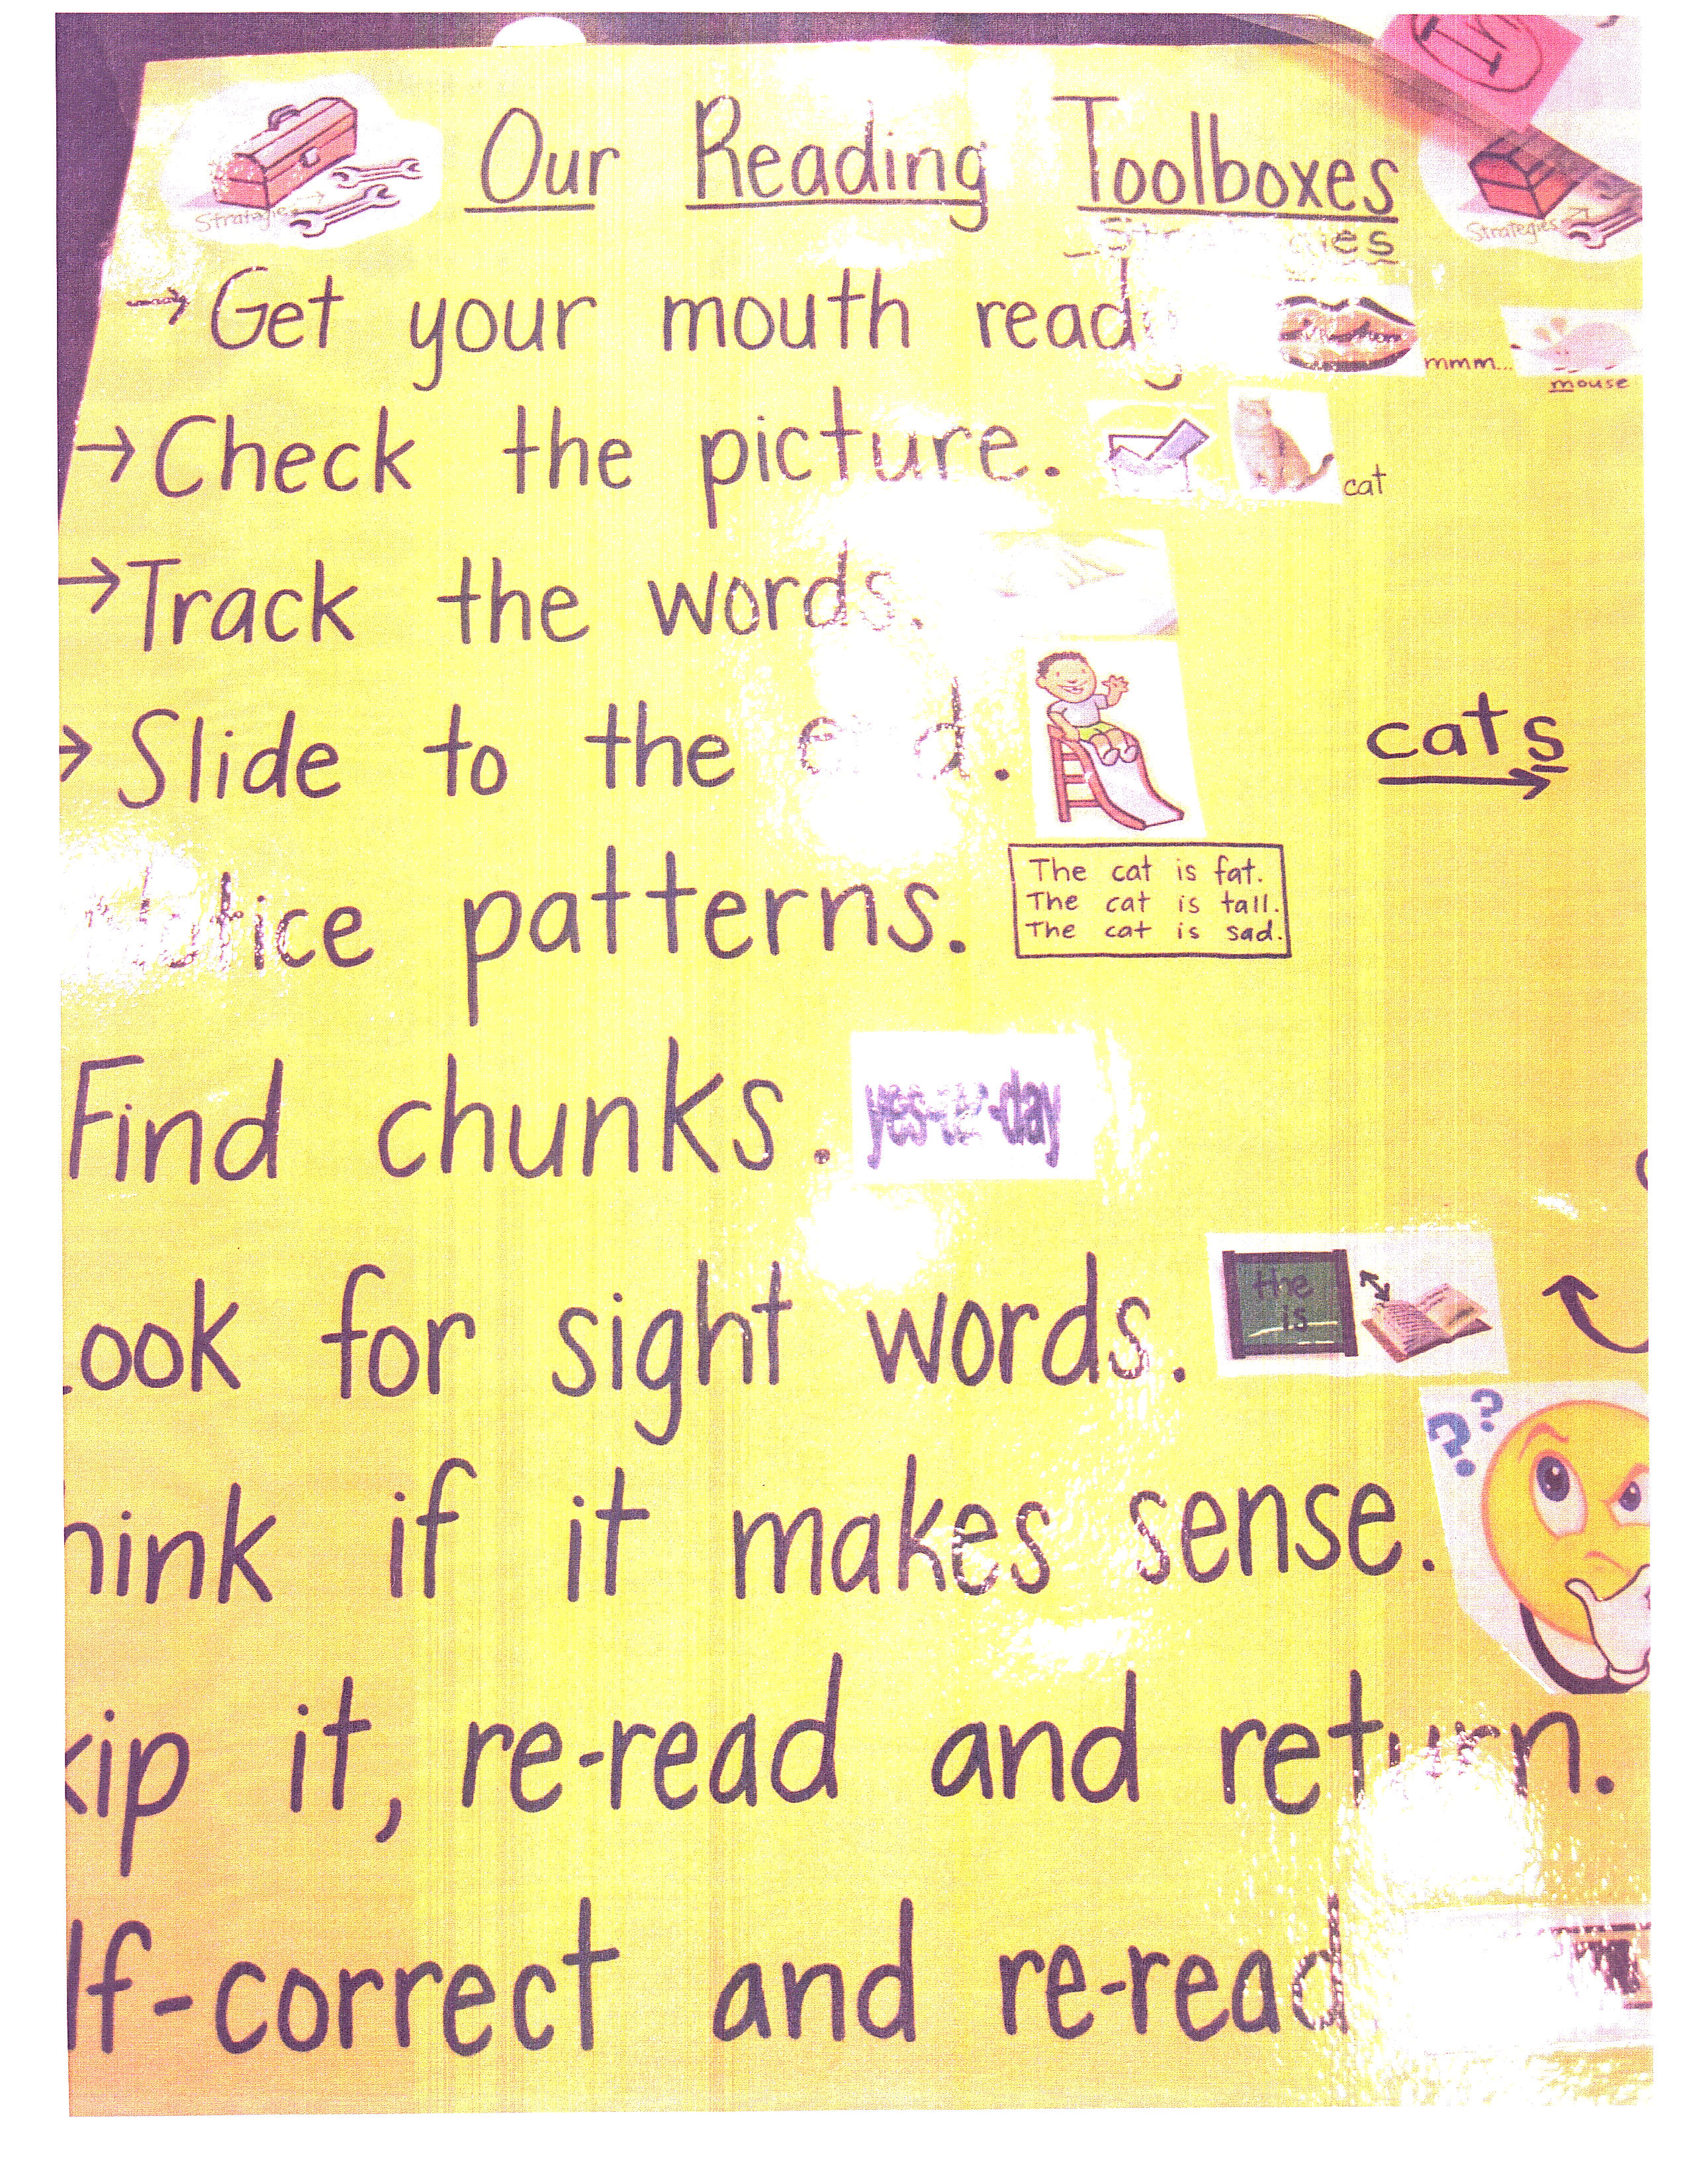 Our Reading Toolboxes
Strategies
Strategies
→ Get your mouth ready
mmm... mouse
→ Check the picture.
cat
→ Track the words.
→ Slide to the end.
cats
Notice patterns.
The cat is fat.
The cat is tall.
The cat is sad.
Find chunks.
yes-ter-day
ook for sight words.
the
is
hink if it makes sense.
??
kip it, re-read and return.
lf-correct and re-read